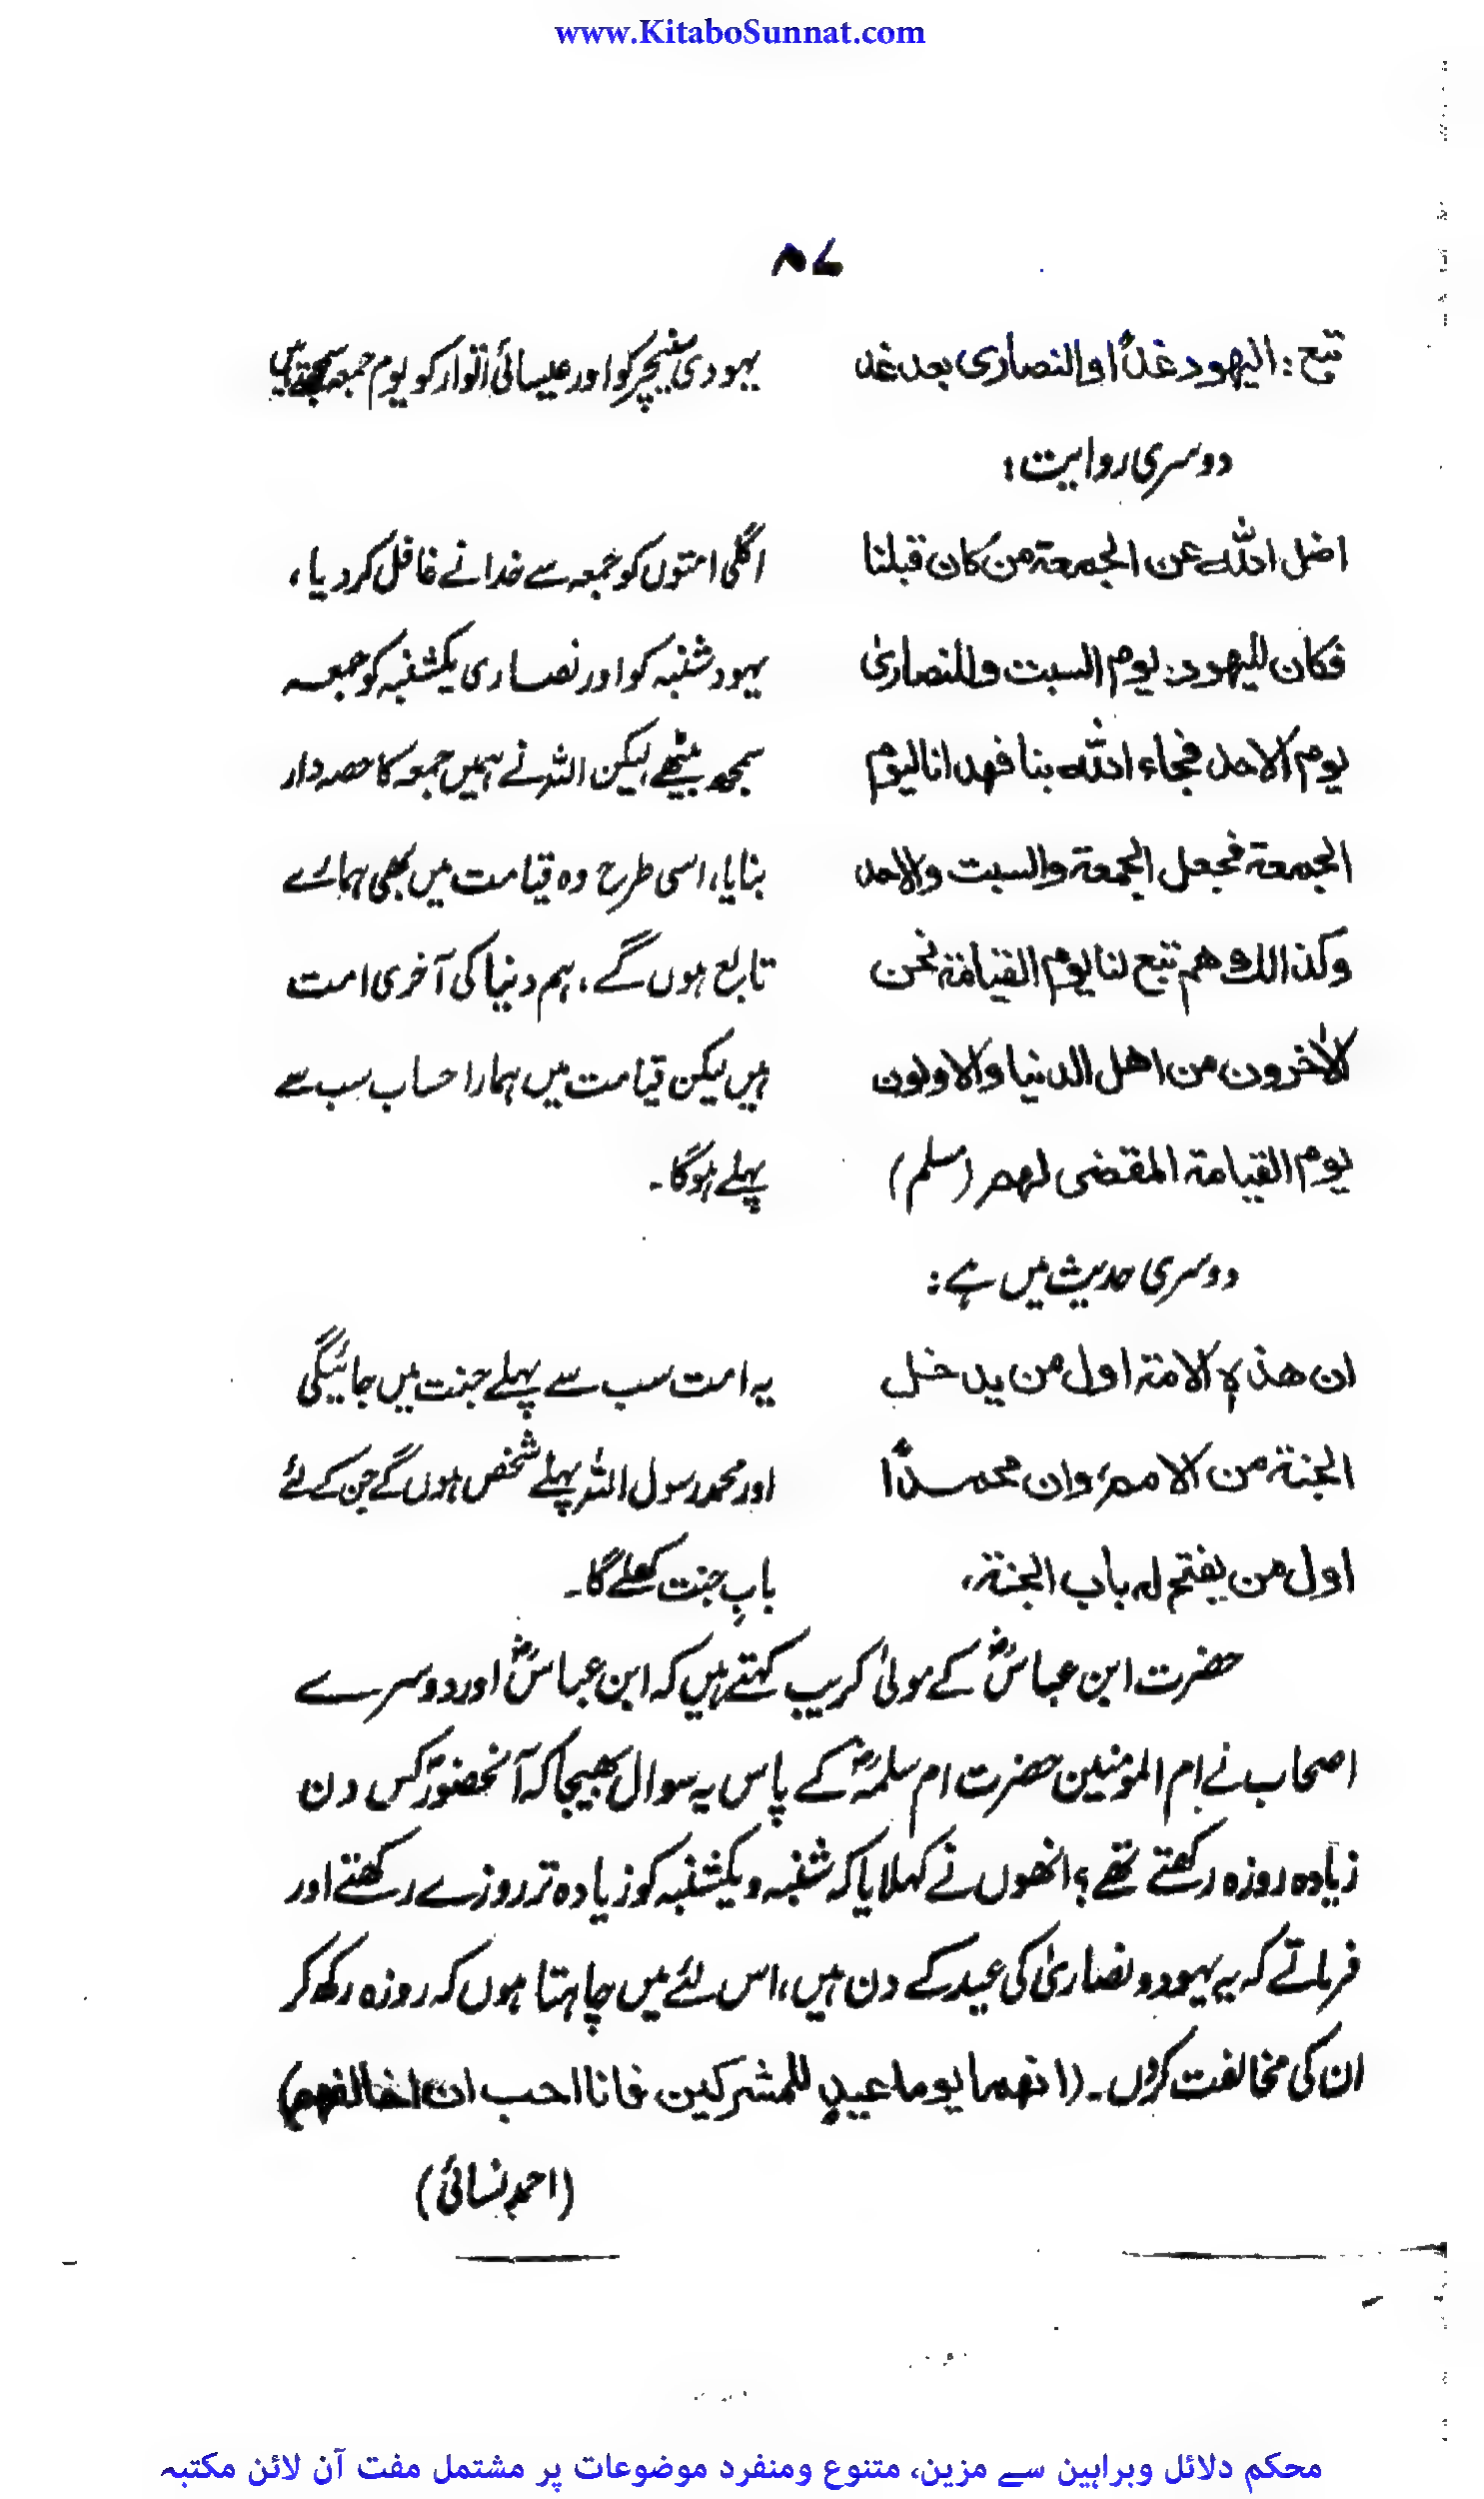 www.KitaboSunnat.com
۸۷
تبع: الیھود غداً والنصاریٰ بعد غد یہودی سنیچر کو اور عیسائی اتوار کو یوم جمعہ سمجھتے ہیں
دوسری روایت:
اضل اللہ عن الجمعة من کان قبلنا اگلی امتوں کو جمعہ سے خدا نے غافل کردیا،
فکان للیھود یوم السبت وللنصاریٰ یہود شنبہ کو اور نصاریٰ یکشنبہ کو جمعہ
یوم الاحد فجاء اللہ بنا فھدانا لیوم سمجھ بیٹھے لیکن اللہ نے ہمیں جمعہ کا حصہ دار
الجمعة فجعل الجمعة والسبت والاحد بنایا، اسی طرح وہ قیامت میں بھی ہمارے
وکذالك ھم تبع لنا یوم القیامة نحن تابع ہوں گے، ہم دنیا کی آخری امت
الاٰخرون من اھل الدنیا والاولون ہیں لیکن قیامت میں ہمارا حساب سب سے
یوم القیامة المقضی لھم (مسلم) پہلے ہوگا۔
دوسری حدیث میں ہے:
ان ھذہ الامة اول من یدخل یہ امت سب سے پہلے جنت میں جائیگی
الجنة من الامم وان محمداً اور محمد رسول اللہ پہلے شخص ہوں گے جن کے لئے
اول من یفتح لہ باب الجنة، بابِ جنت کھلے گا۔
حضرت ابن عباسؓ کے مولیٰ کریب کہتے ہیں کہ ابن عباسؓ اور دوسرے
اصحاب نے ام المومنین حضرت ام سلمہؓ کے پاس یہ سوال بھیجا کہ آنحضورؐ کس دن
زیادہ روزہ رکھتے تھے؟ انھوں نے کہلایا کہ شنبہ و یکشنبہ کو زیادہ تر روزے رکھتے اور
فرماتے کہ یہ یہود و نصاریٰ کی عید کے دن ہیں، اس لئے میں چاہتا ہوں کہ روزہ رکھ کر
ان کی مخالفت کروں۔ (انھما یوما عید للمشرکین فانا احب ان اخالفھم)
(احمد نسائی)
محکم دلائل وبراہین سے مزین، متنوع ومنفرد موضوعات پر مشتمل مفت آن لائن مکتبہ